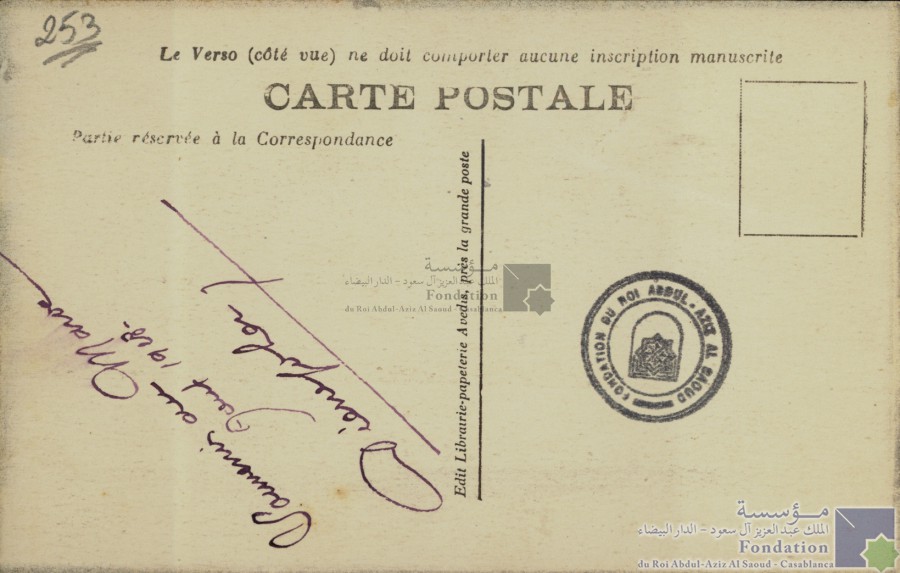 253
Le Verso (côté vue) ne doit comporter aucune inscription manuscrite
CARTE POSTALE
Partie réservée à la Correspondance
Souvenir au Maroc
Aout 1928.
Edit Librairie-papeterie Avedis, près la grande poste
مؤسسة
الملك عبد العزيز آل سعود - الدار البيضاء
Fondation
du Roi Abdul-Aziz Al Saoud - Casablanca
FONDATION DU ROI ABDUL-AZIZ AL SAOUD
مؤسسة
الملك عبد العزيز آل سعود - الدار البيضاء
Fondation
du Roi Abdul-Aziz Al Saoud - Casablanca